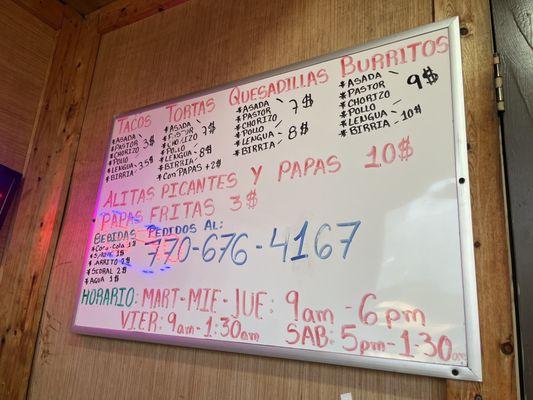 TACOS
*ASADA
*PASTOR
*CHORIZO 3$
*POLLO
*LENGUA 3.5$
*BIRRIA
TORTAS
*ASADA
*CHORIZO 7$
*POLLO
*LENGUA 8$
*BIRRIA
*CON PAPAS +2$
QUESADILLAS
*ASADA
*PASTOR 7$
*CHORIZO
*POLLO
*LENGUA 8$
*BIRRIA
BURRITOS
*ASADA
*PASTOR 9$
*CHORIZO
*POLLO
*LENGUA 10$
*BIRRIA
ALITAS PICANTES Y PAPAS 10$
PAPAS FRITAS 3$
BEBIDAS
*Coca-Cola
*JARRITO 2$
2$
*AGUA 1$
PEDIDOS AL:
770-676-4167
HORARIO: MART-MIE-JUE: 9am-6pm
VIER: 9am-1:30am SAB: 5pm-1:30am